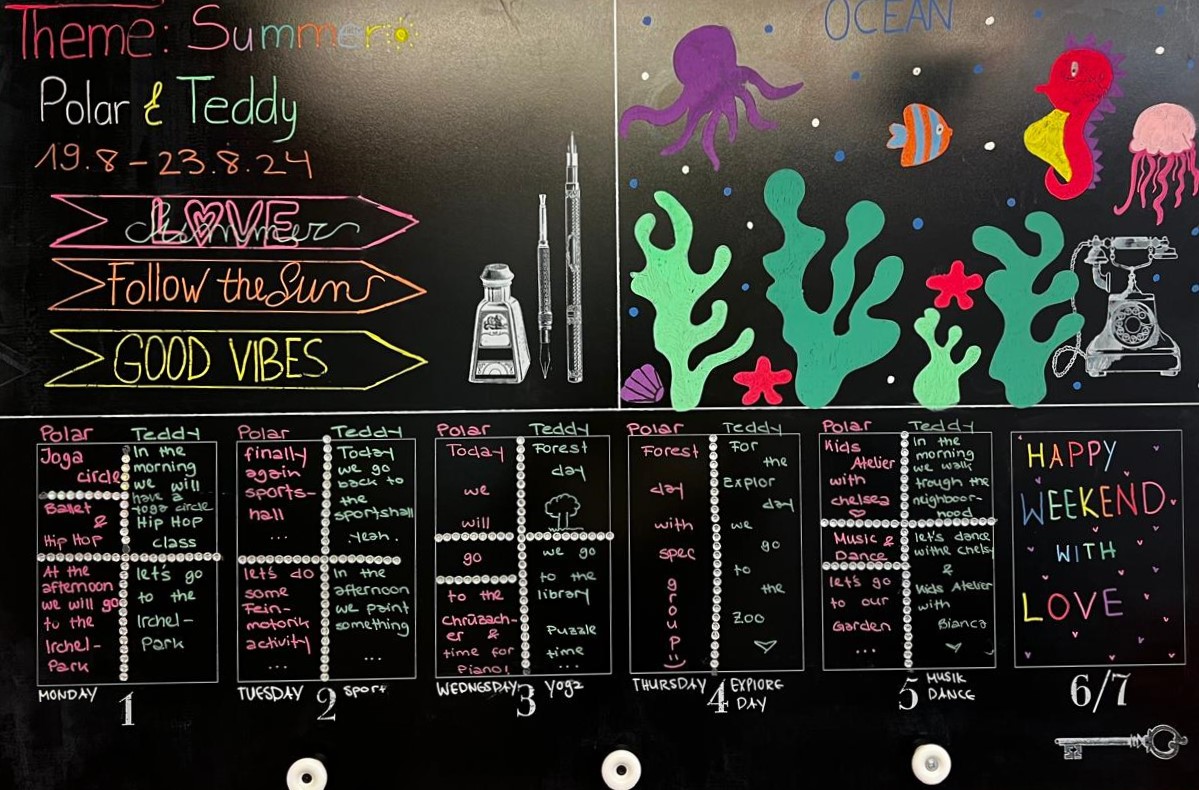 Theme: Summer
Polar & Teddy
19.8 - 23.8.24
LOVE
Summer
Follow the Sun
GOOD VIBES
OCEAN
Polar
Joga
circle
Ballet
&
Hip Hop
At the
afternoon
we will go
to the
Irchel-
Park
Teddy
In the
morning
we will
have a
yoga circle
Hip Hop
class
let's go
to the
Irchel-
Park
MONDAY 1
Polar
finally
again
sports-
hall
...
let's do
some
Fein-
motorik
activity
...
Teddy
Today
we go
back to
the
sportshall
.yeah.
In the
afternoon
we paint
something
...
TUESDAY 2 Sport
Polar
Today
we
will
go
to the
chrüzach-
er &
time for
Piano!
Teddy
Forest
day
we go
to the
library
Puzzle
time
...
WEDNESDAY 3 Yoga
Polar
Forest
day
with
spec
g
r
o
u
p
Teddy
For
the
Explor
day
we
go
to
the
zoo
THURSDAY 4 EXPLORE
DAY
Polar
Kids
Atelier
with
chelsea
Music &
Dance
let's go
to our
Garden
...
Teddy
In the
morning
we walk
trough the
neighboor-
hood
let's dance
withe chelsy
&
Kids Atelier
with
Bianca
5 MUSIK
DANCE
HAPPY
WEEKEND
WITH
LOVE
6/7